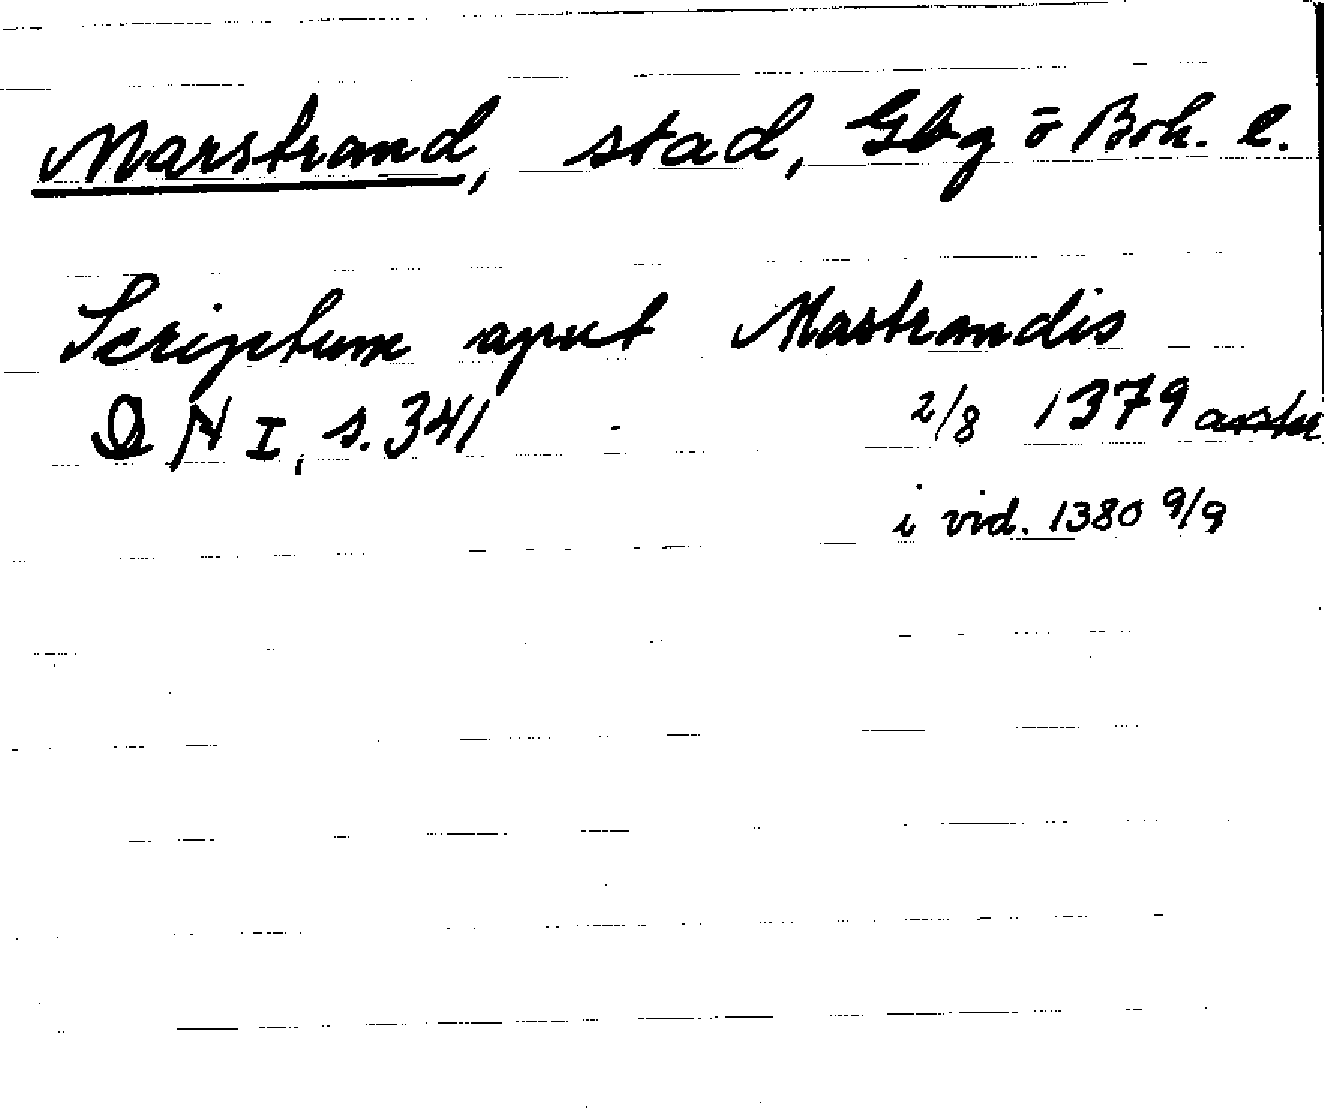 Marstrand, stad, Gbg o Boh. l.
Scriptum aput Mastrandis
DN I, s. 341 2/8 1379 avskr
i vid. 1380 9/9